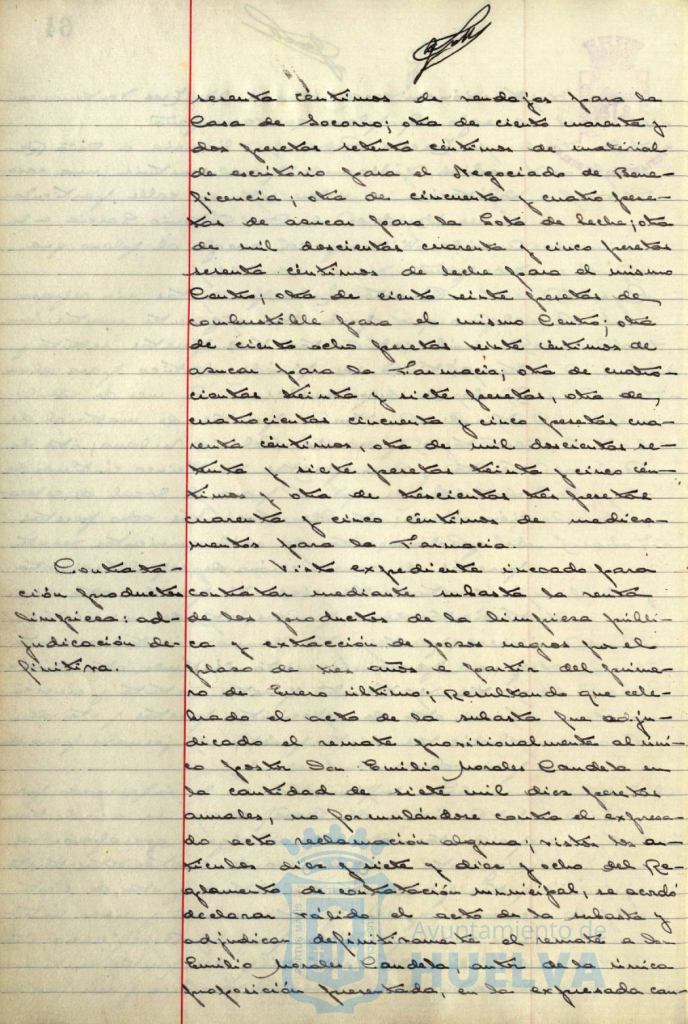 sesenta céntimos de vendajes para la
Casa de Socorro; otra de ciento cuarenta y
dos pesetas setenta céntimos de material
de escritorio para el Negociado de Bene-
ficencia; otra de cincuenta y cuatro pese-
tas de azucar para la Gota de leche; otra
de mil doscientas cuarenta y cinco pesetas
sesenta céntimos de leche para el mismo
Centro; otra de ciento veinte pesetas de
combustible para el mismo Centro; otra
de ciento ocho pesetas veinte céntimos de
azucar para la Farmacia; otra de cuatro-
cientas treinta y siete pesetas, otra de
cuatrocientas cincuenta y cinco pesetas cua-
renta céntimos, otra de mil doscientas se-
tenta y siete pesetas treinta y cinco cén-
timos y otra de trescientas tres pesetas
cuarenta y cinco céntimos de medica-
mentos para la Farmacia.
Contrata-
ción productos
limpieza: ad-
judicación de-
finitiva.
Visto expediente incoado para
contratar mediante subasta la venta
de los productos de la limpieza públi-
ca y extracción de pozos negros por el
plazo de tres años a partir del prime-
ro de Enero último; Resultando que cele-
brado el acto de la subasta fue adju-
dicado el remate provisionalmente al úni-
co postor Don Emilio Morales Candela en
la cantidad de siete mil diez pesetas
anuales, no formulándose contra el expresa-
do acto reclamación alguna; vistos los ar-
tículos diez y siete y diez y ocho del Re-
glamento de contratación municipal, se acordó
declarar válido el acto de la subasta y
adjudicar definitivamente el remate a Don
Emilio Morales Candela, autor de la única
proposición presentada, en la expresada can-
Ayuntamiento de
HUELVA